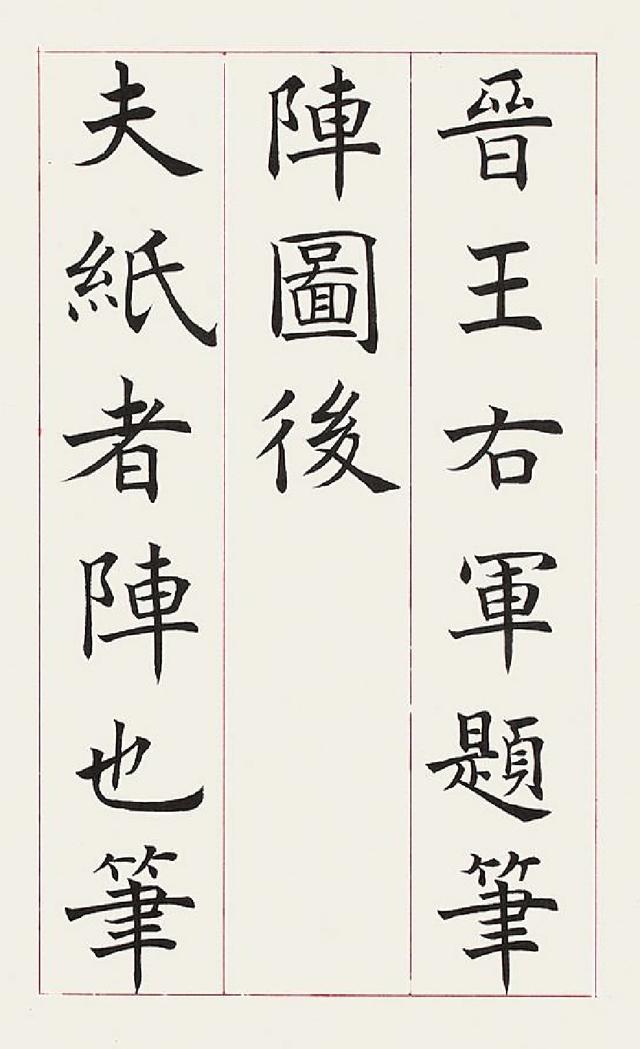 晉王右軍題筆
陣圖後
夫紙者陣也筆